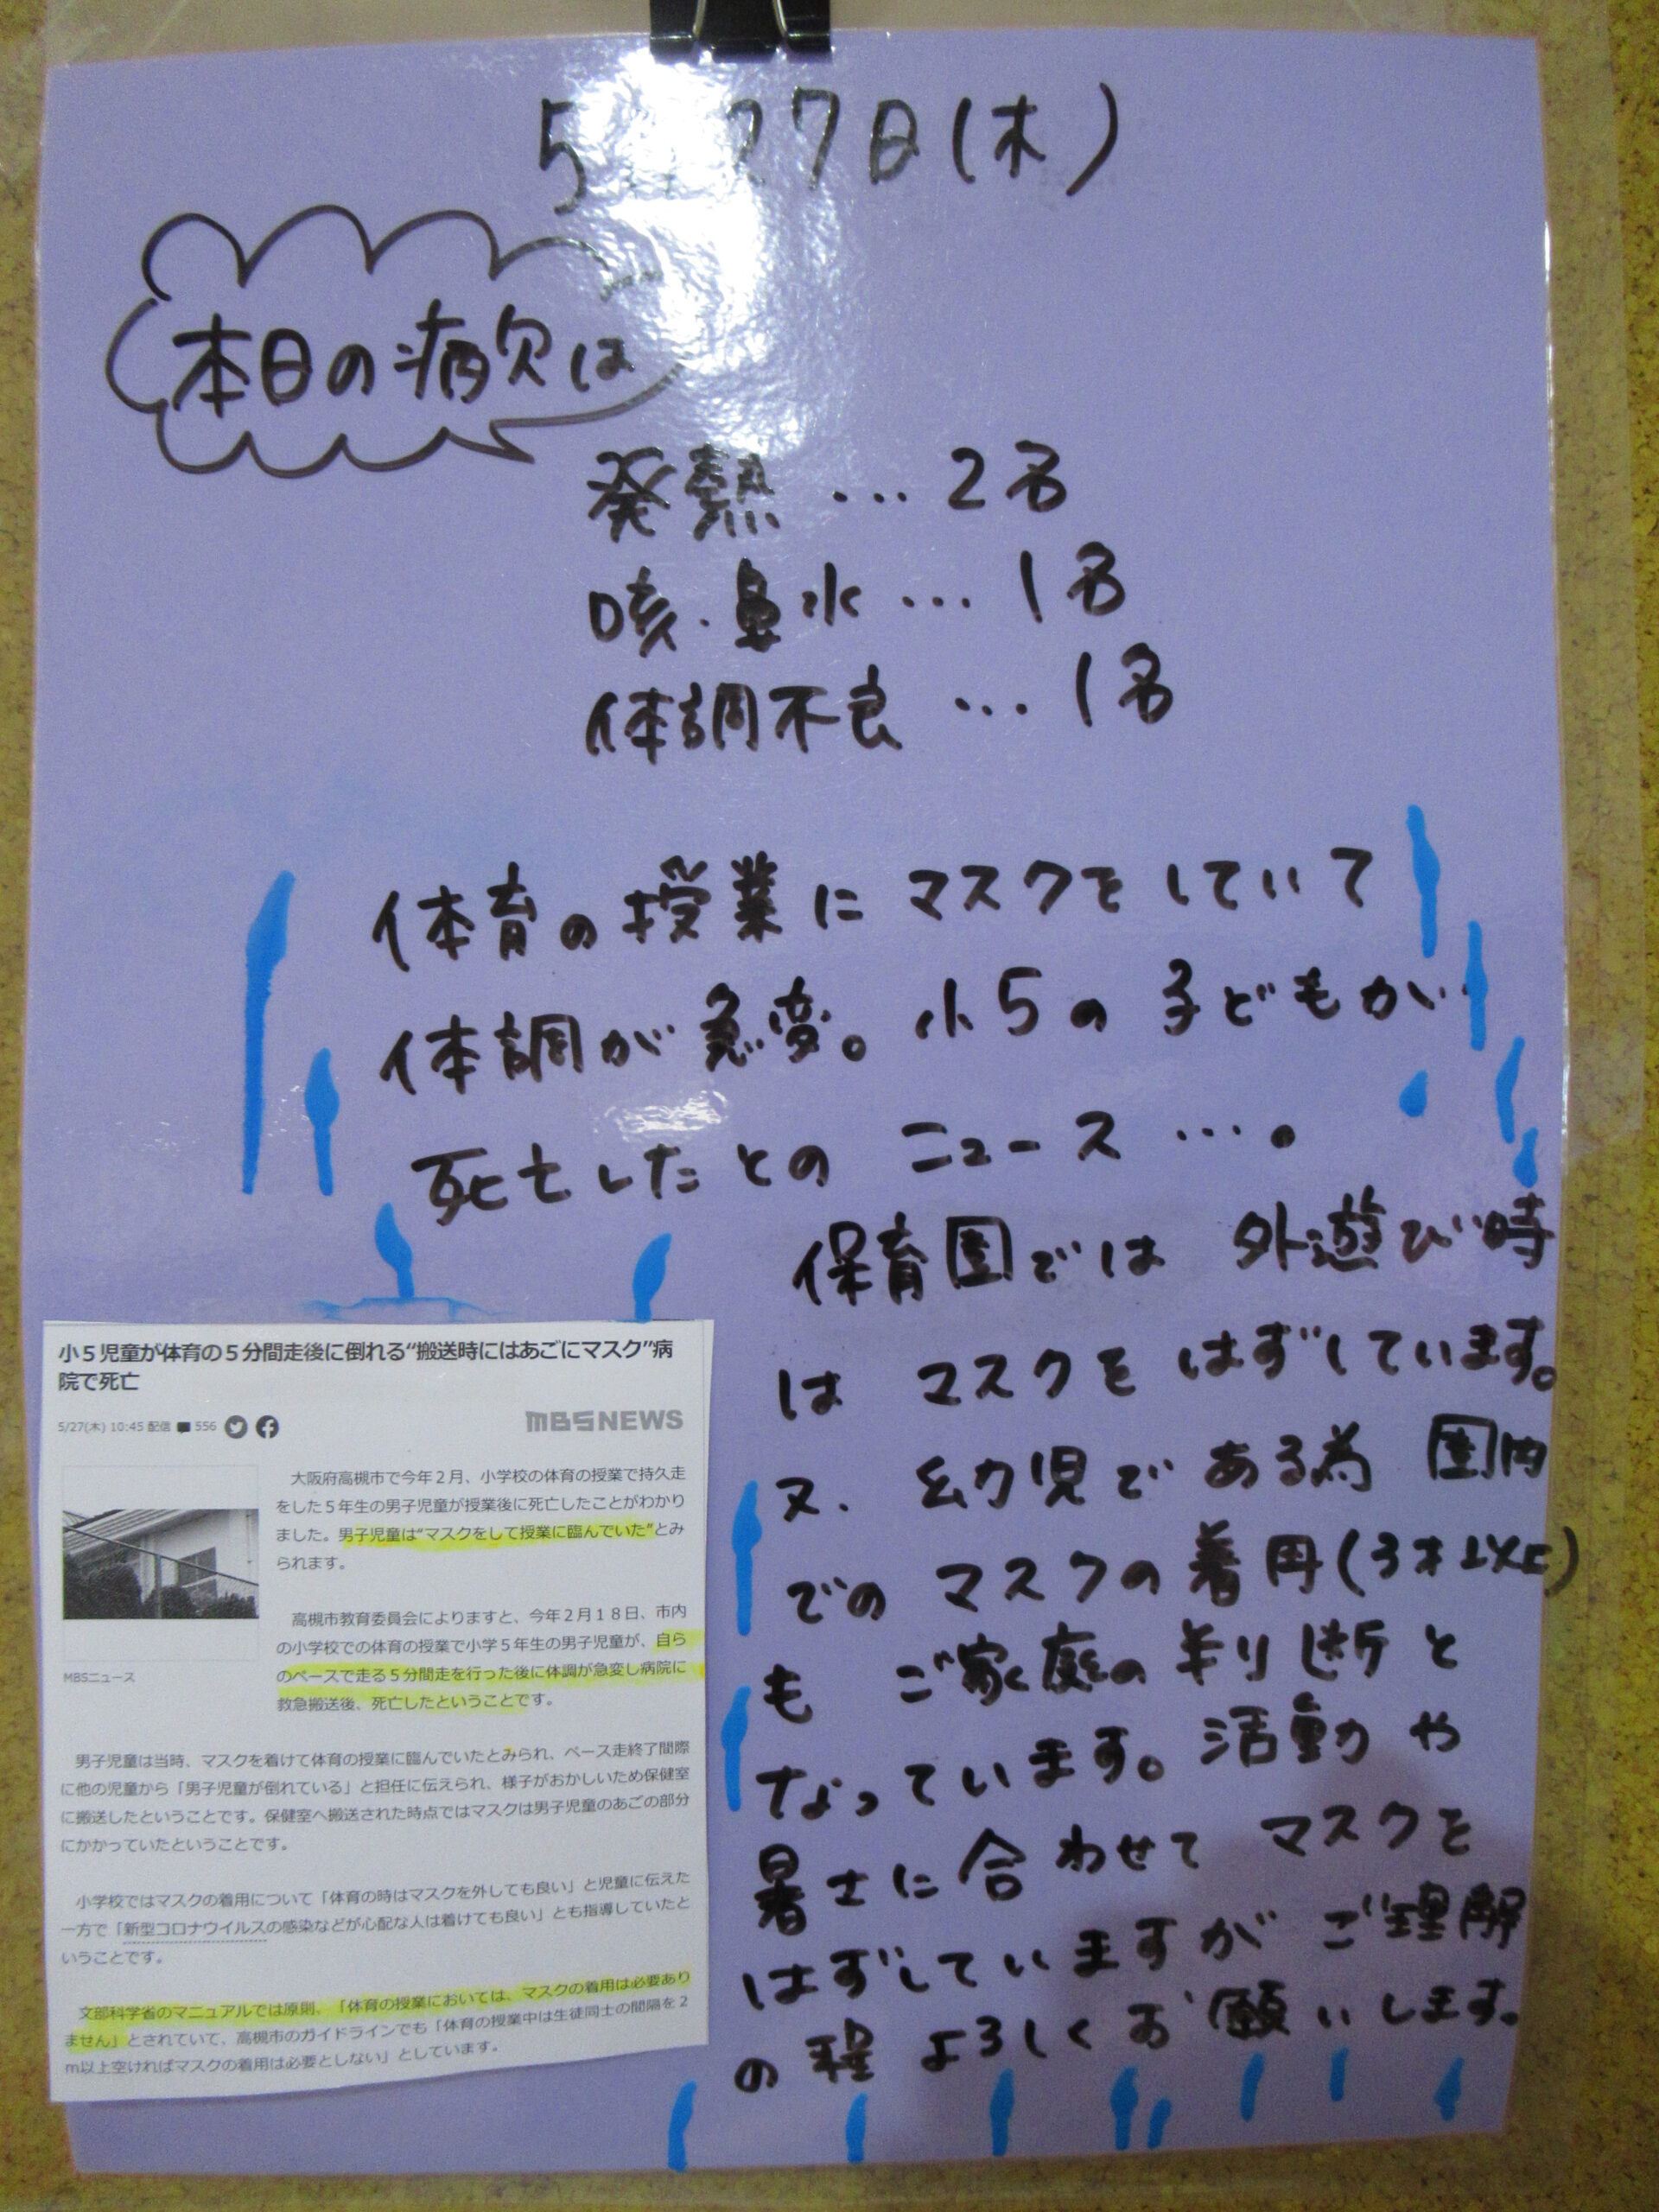 5 27日(木)
本日の病欠は
発熱 … 2名
咳・鼻水 … 1名
体調不良 … 1名
体育の授業に マスクをしていて
体調が急変。小5の子どもが
死亡したとの ニュース …。
保育園では 外遊び時
は マスクを はずしています。
又、幼児で ある為 園内
での マスクの着用(3才以上)
も ご家庭の判断と
なっています。活動や
暑さに合わせて マスクを
はずしていますが ご理解
の程 よろしくお願いします。
小５児童が体育の５分間走後に倒れる“搬送時にはあごにマスク”病
院で死亡
5/27(木) 10:45 配信 556
MBSNEWS
大阪府高槻市で今年２月、小学校の体育の授業で持久走
をした５年生の男子児童が授業後に死亡したことがわかり
ました。男子児童は“マスクをして授業に臨んでいた”とみ
られます。
高槻市教育委員会によりますと、今年２月１８日、市内
の小学校での体育の授業で小学５年生の男子児童が、自ら
のペースで走る５分間走を行った後に体調が急変し病院に
救急搬送後、死亡したということです。
MBSニュース
男子児童は当時、マスクを着けて体育の授業に臨んでいたとみられ、ペース走終了間際
に他の児童から「男子児童が倒れている」と担任に伝えられ、様子がおかしいため保健室
に搬送したということです。保健室へ搬送された時点ではマスクは男子児童のあごの部分
にかかっていたということです。
小学校ではマスクの着用について「体育の時はマスクを外しても良い」と児童に伝えた
一方で「新型コロナウイルスの感染などが心配な人は着けても良い」とも指導していたと
いうことです。
文部科学省のマニュアルでは原則、「体育の授業においては、マスクの着用は必要あり
ません」とされていて、高槻市のガイドラインでも「体育の授業中は生徒同士の間隔を２
ｍ以上空ければマスクの着用は必要としない」としています。